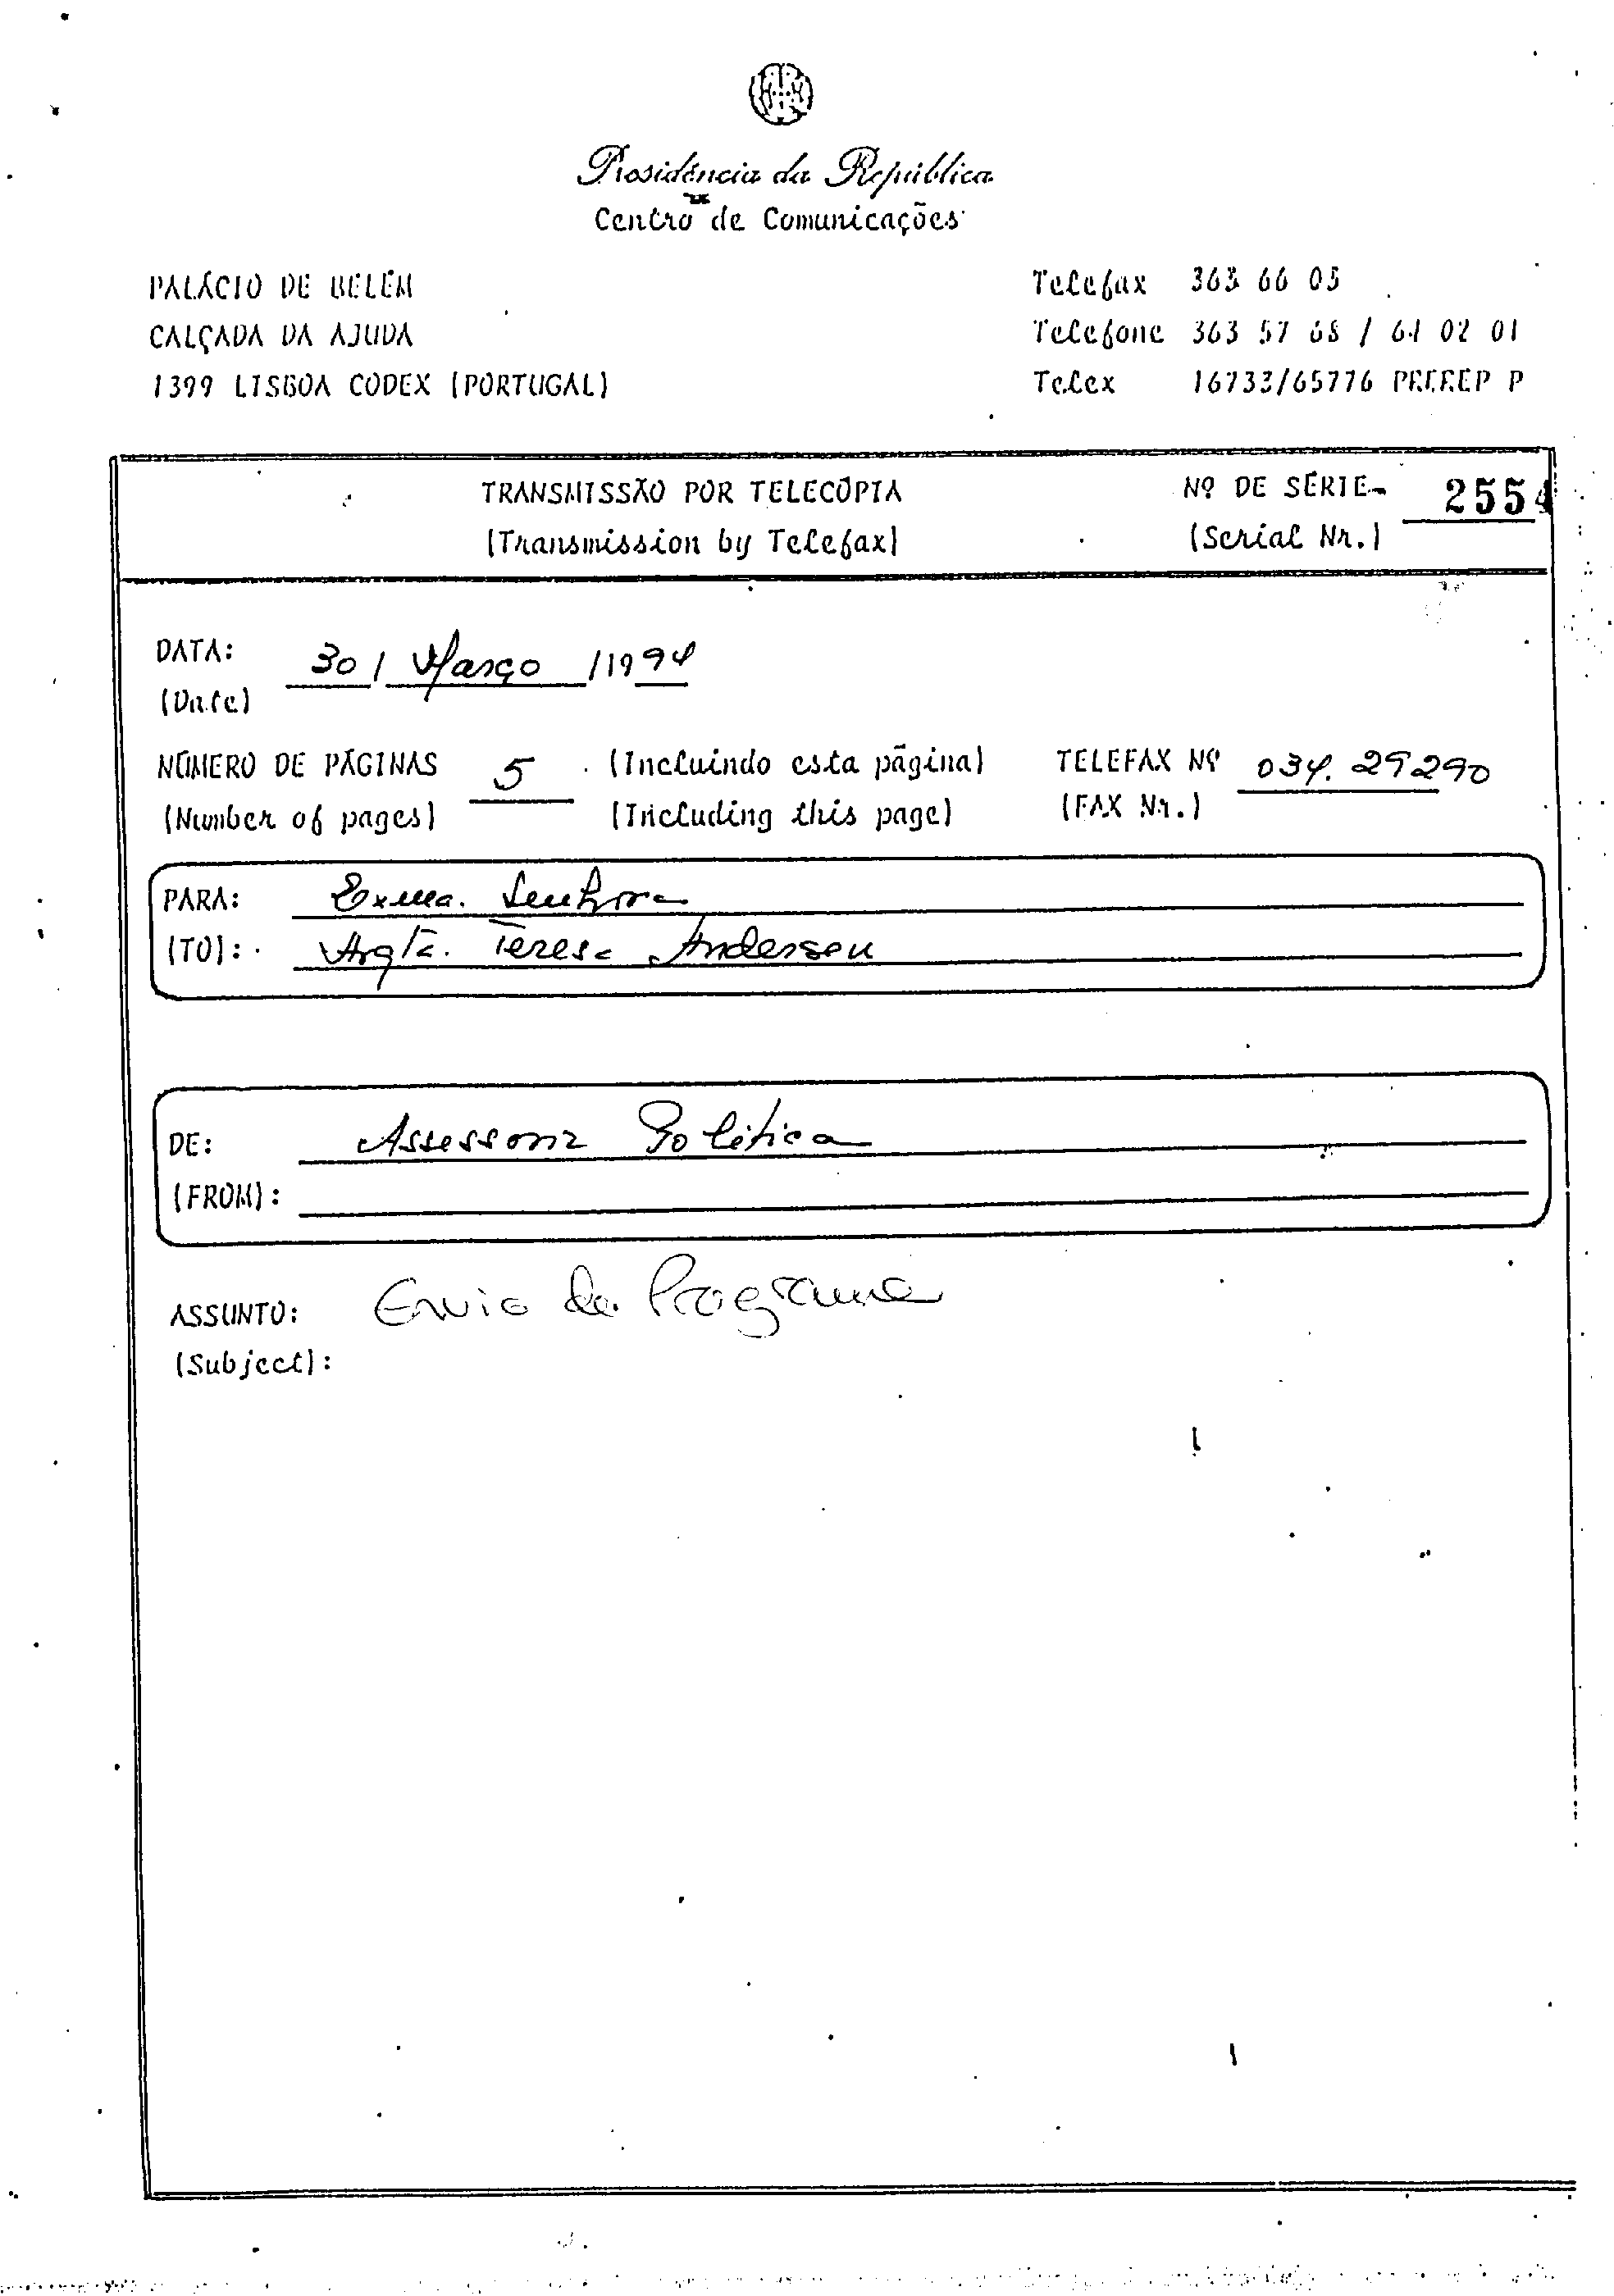 Presidência da República
Centro de Comunicações
PALÁCIO DE BELÉM
CALÇADA DA AJUDA
1399 LISBOA CODEX (PORTUGAL)
Telefax 363 66 05
Telefone 363 57 68 / 64 02 01
Telex 16733/65776 PREREP P
TRANSMISSÃO POR TELECÓPIA
(Transmission by Telefax)
Nº DE SÉRIE 2554
(Serial Nr.)
DATA: 30 / Março / 1994
(Date)
NÚMERO DE PÁGINAS 5 (Incluindo esta página) TELEFAX Nº 034. 29290
(Number of pages) (Including this page) (FAX Nr.)
PARA: Exma. Senhora
(TO): Arqtª. Teresa Andersen
DE: Assessoria Política
(FROM):
ASSUNTO: Envio de Programa
(Subject):